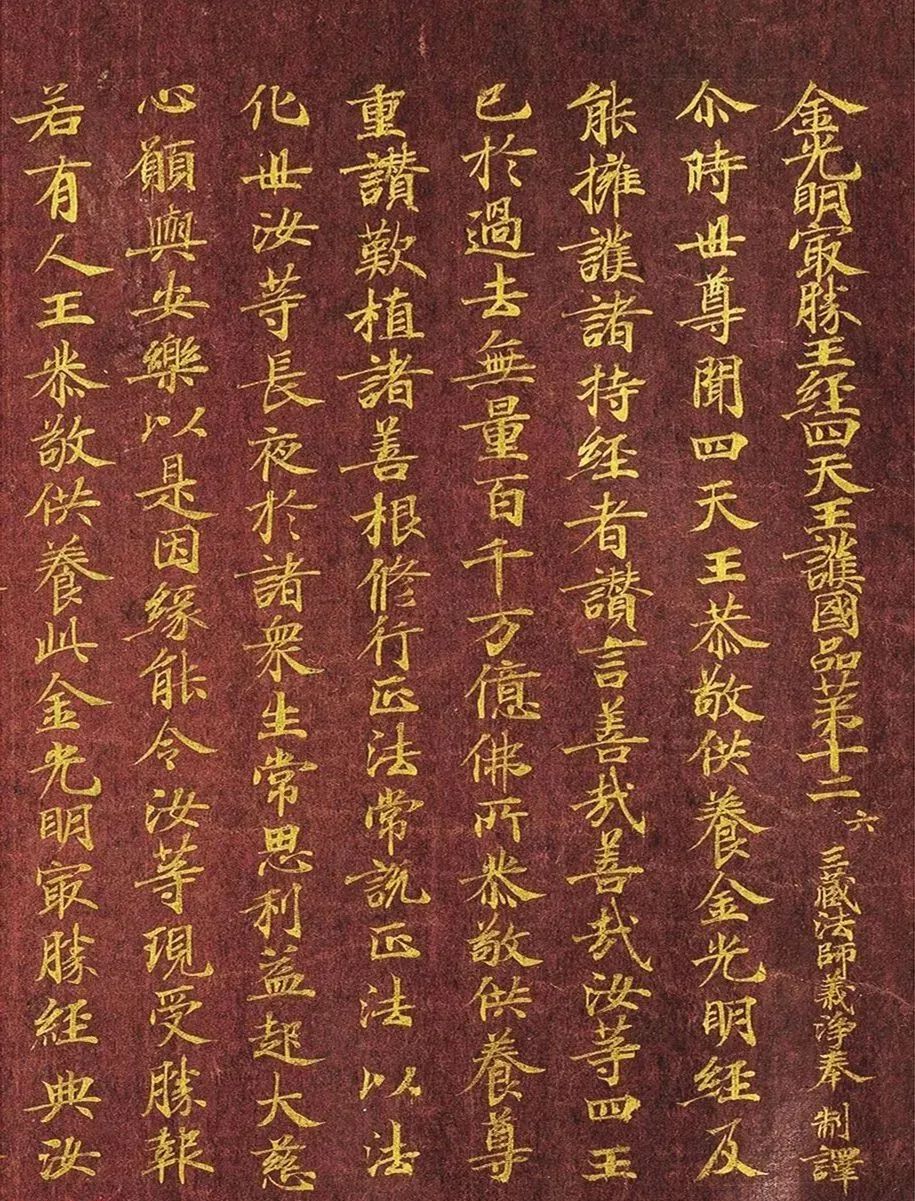 金光明冣勝王經四天王護國品第十二 六 三藏法師義淨奉 制譯
尒時世尊聞四天王恭敬供養金光明經及
能擁護諸持經者讚言善哉善哉汝等四王
已於過去無量百千万億佛所恭敬供養尊
重讚歎植諸善根修行正法常說正法以法
化世汝等長夜於諸衆生常思利益起大慈
心願與安樂以是因緣能令汝等現受勝報
若有人王恭敬供養此金光明冣勝經典汝